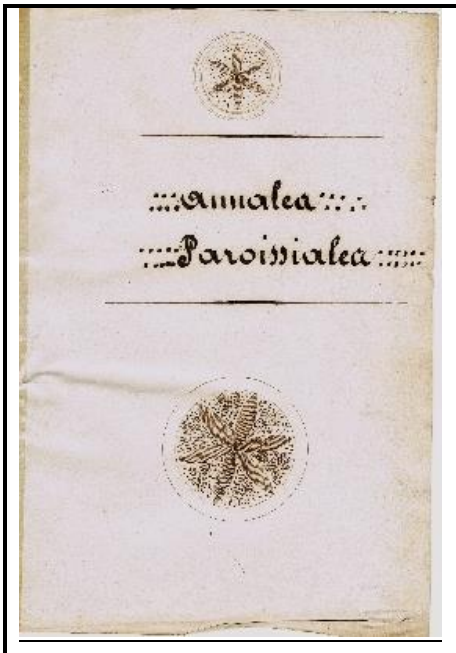 Annales
Paroissiales